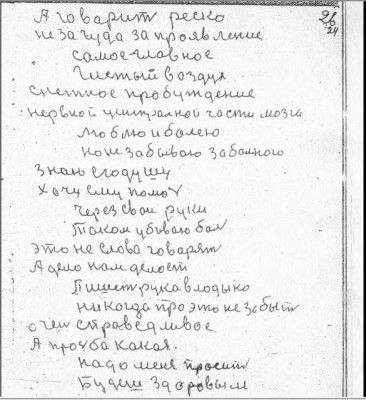 А говарит реско
26
24
незачуда за проявление
самое главное
Чистый воздух
снетное пробуждение
нервной централной части мозга
Люблю и болею
но не забываю забалного
Знаю его душу
Хочу ему помоч
Через свои руки
Таком убиваю бол
это не слова говарят
А дело нам делает
Пишет рука владыко
никогда про это не забыт
очен справедливое
А прозба какая.
надо меня просит
Будеш здоровым